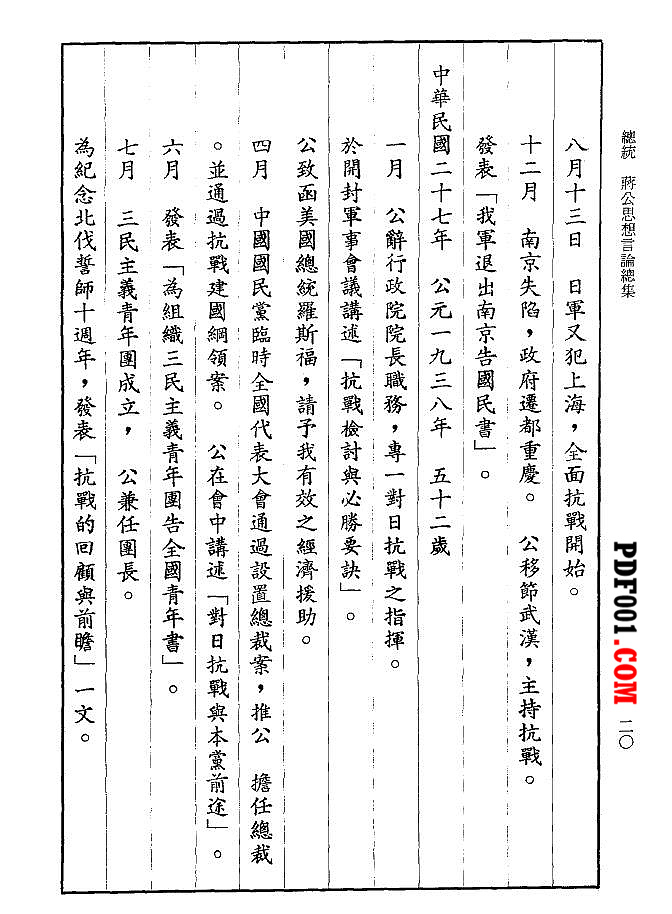 總統　蔣公思想言論總集
八月十三日　日軍又犯上海，全面抗戰開始。
十二月　南京失陷，政府遷都重慶。　公移節武漢，主持抗戰。
發表「我軍退出南京告國民書」。
中華民國二十七年　公元一九三八年　五十二歲
一月　公辭行政院院長職務，專一對日抗戰之指揮。
於開封軍事會議講述「抗戰檢討與必勝要訣」。
公致函美國總統羅斯福，請予我有效之經濟援助。
四月　中國國民黨臨時全國代表大會通過設置總裁案，推公　擔任總裁
。並通過抗戰建國綱領案。　公在會中講述「對日抗戰與本黨前途」。
六月　發表「為組織三民主義青年團告全國青年書」。
七月　三民主義青年團成立，　公兼任團長。
為紀念北伐誓師十週年，發表「抗戰的回顧與前瞻」一文。
二〇
PDF001.COM